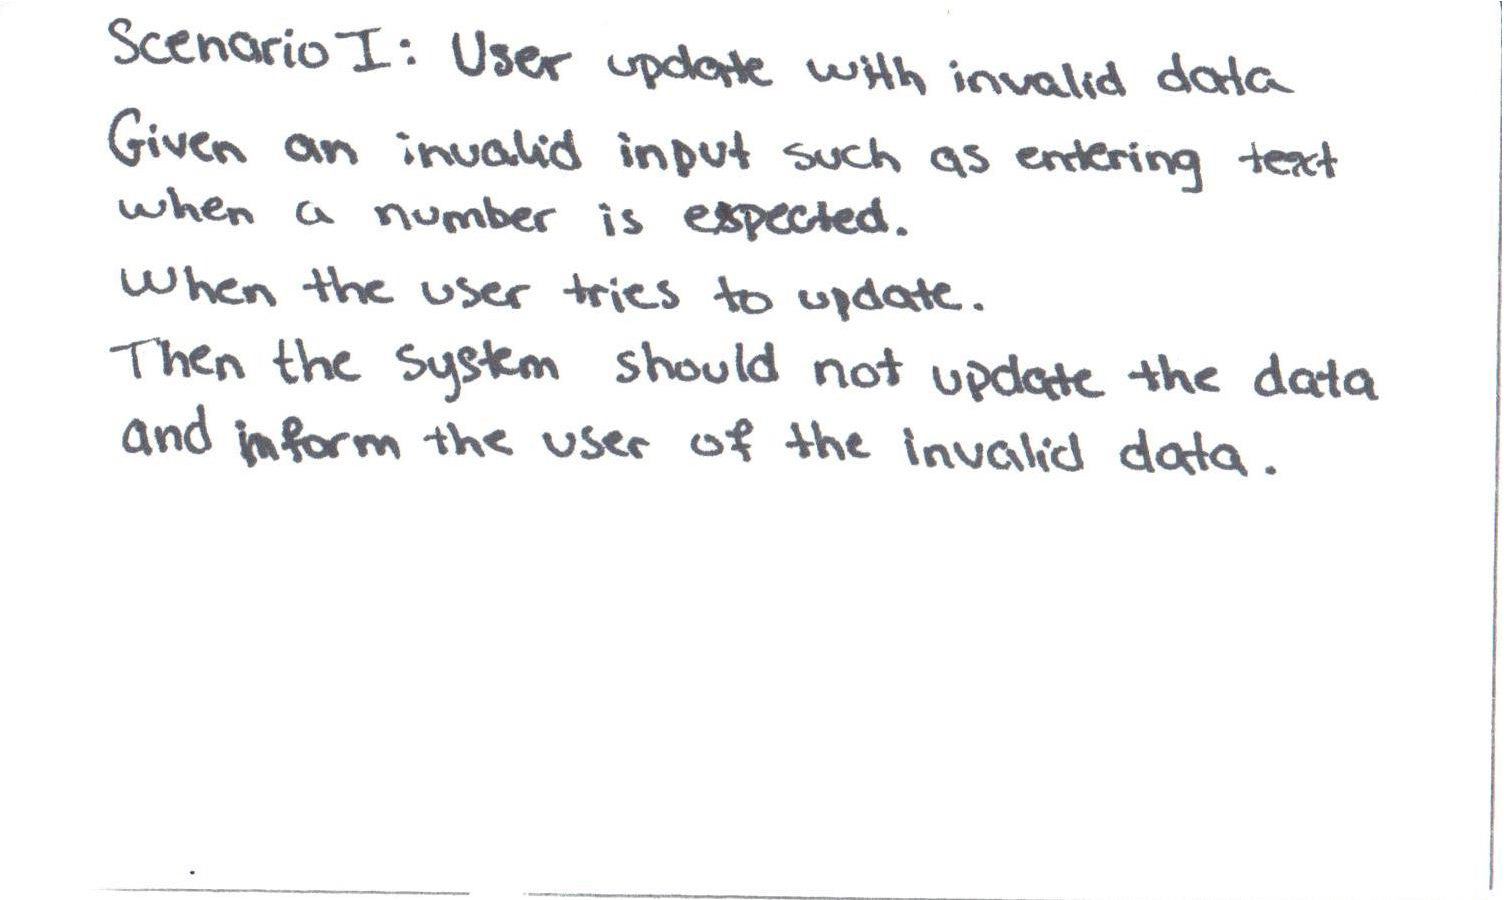 Scenario I: User update with invalid data
Given an invalid input such as entering text
when a number is expected.
When the user tries to update.
Then the system should not update the data
and inform the user of the invalid data.